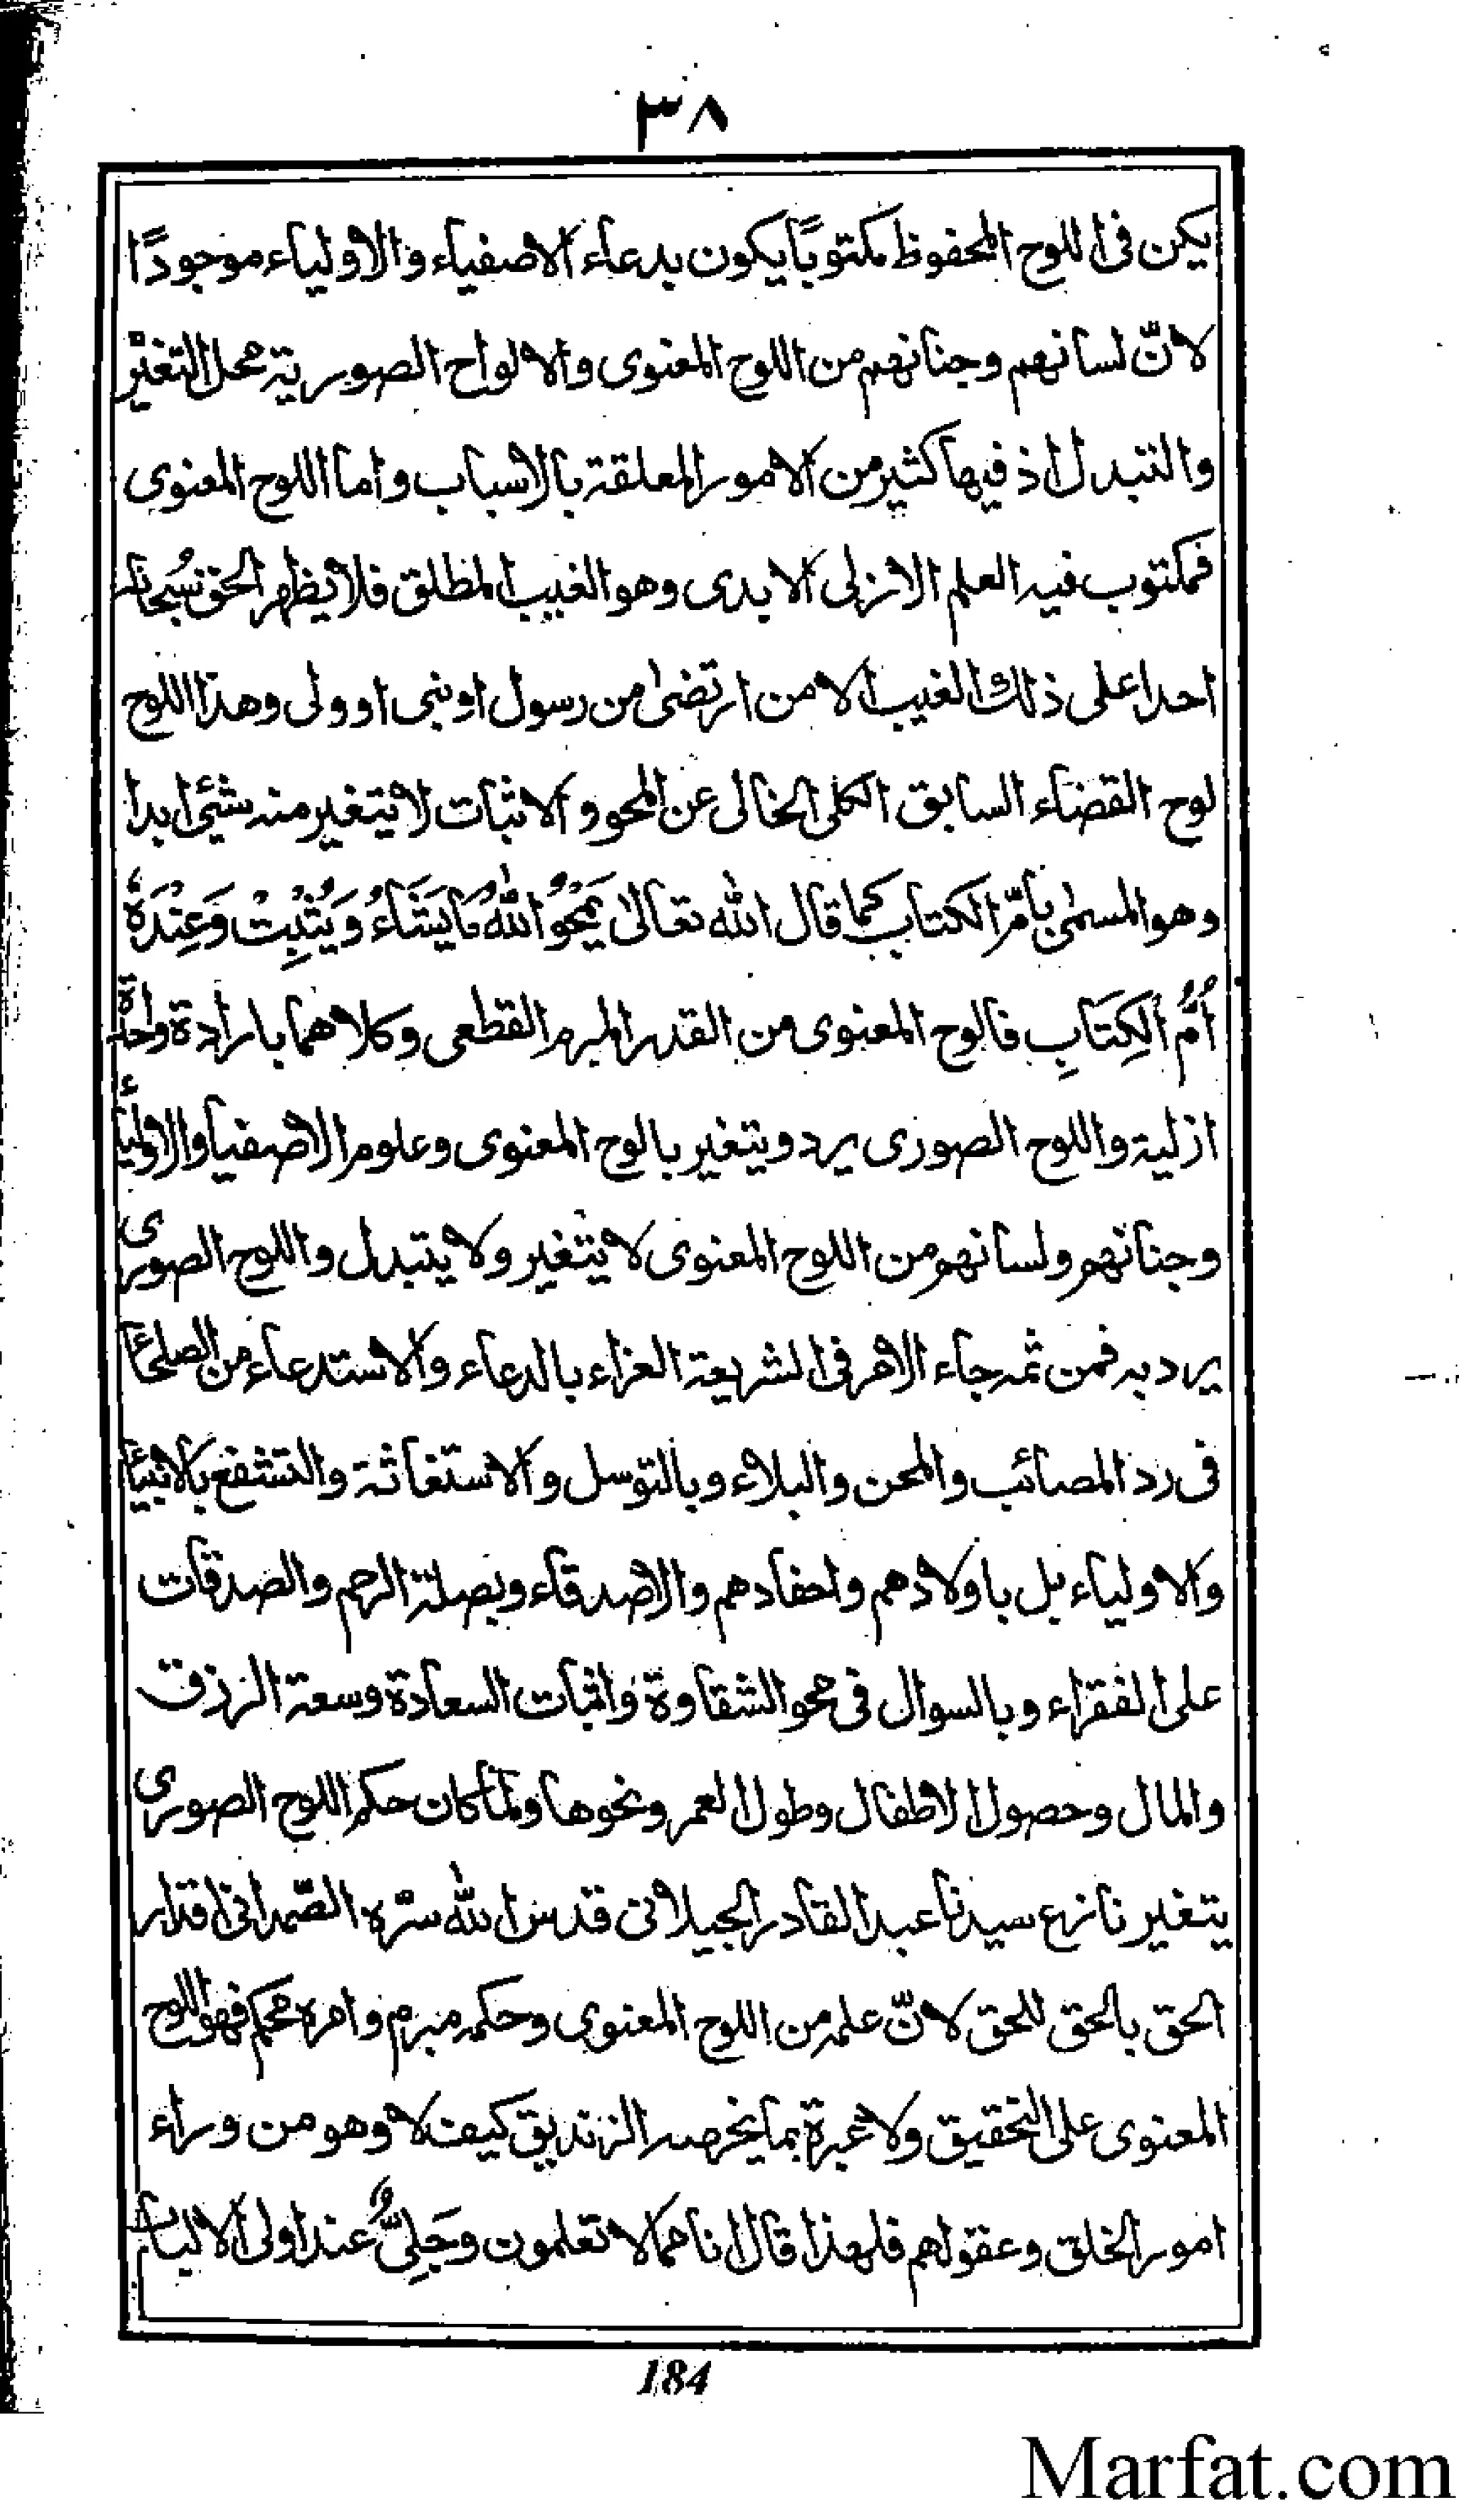 ٣٨
يكن فى اللوح المحفوظ مكتوبًا يكون بدعاء الاصفياء والاولياء موجودًا
لانّ لسانهم وجنانهم من اللوح المعنوى والالواح الصورية محل التغيّر
والتبدل اذ فيها كثير من الامور المعلقة بالاسباب واما اللوح المعنوى
فمكتوب فيه العلم الازلى الابدى وهو الغيب المطلق فلا يظهر الحق سُبحانه
احدا على ذلك الغيب الا من ارتضىٰ من رسول او نبى او ولى وهذا اللوح
لوح القضاء السابق الكلى الخالى عن المحو والاثبات لا يتغير منه شيئ ابدا
وهو المسمىٰ بأمّ الكتاب كما قال الله تعالىٰ يَمْحُوا اللهُ مَا يَشَاءُ وَيُثْبِتُ وَعِنْدَهٗ
اُمُّ الْكِتَابِ فالوح المعنوى من القدر المبرم القطعى وكلاهما بارادة واحدة
ازلية واللوح الصورى يرد ويتغير بالوح المعنوى وعلوم الاصفيا والاولياء
وجنانهم ولسانهم من اللوح المعنوى لا يتغير ولا يتبدل واللوح الصورى
يرد به فمن ثمه جاء الامر فى الشريعة الغراء بالدعاء والاستدعاء من الصلحاء
فى رد المصائب والمحن والبلاء وبالتوسل والاستغاثة والتشفع بالانبياء
والاولياء بل باولادهم واحفادهم والاصدقاء وبصلة الرحم والصدقات
على الفقراء وبالسوال فى محو الشقاوة واثبات السعادة وسعة الرزق
والمال وحصول الاطفال وطول العمر ونحوها ولما كان حكم اللوح الصورى
يتغير نازع سيدنا عبد القادر الجيلانى قدس الله سرّه الصّمدانى اقدار
الحق بالحق للحق لانّ علمه من اللوح المعنوى وحكمه مبرم وامره محكم فهو اللوح
المعنوى على التحقيق ولا عبرة بما يخرصه الزنديق كيف لا وهو من وراء
امور الخلق وعقولهم فلهذا قال انا مما لا تعلمون وجَلِىٌّ عند اولى الالباب
184
Marfat.com